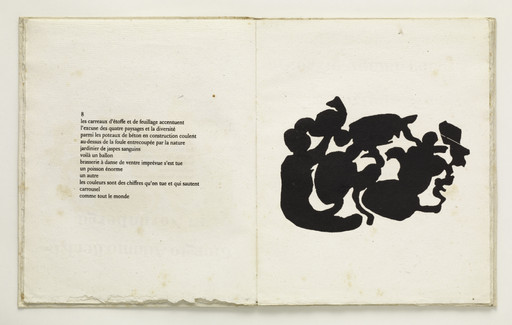 8
les carreaux d'étoffe et de feuillage accentuent
l'excuse des quatre paysages et la diversité
parmi les poteaux de béton en construction coulent
au-dessus de la foule entrecoupée par la nature
jardinier de jaspes sanguins
voilà un ballon
brasserie à danse de ventre imprévue s'est tue
un poisson énorme
un autre
les couleurs sont des chiffres qu'on tue et qui sautent
carrousel
comme tout le monde